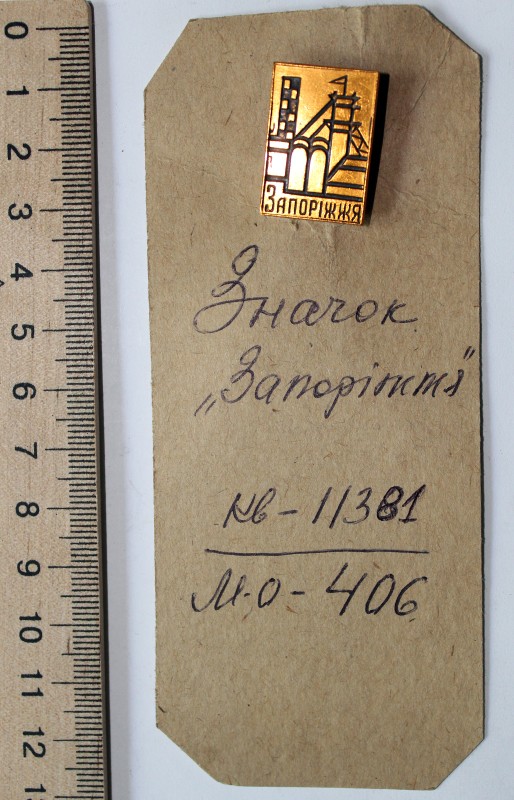 0
1
2
3
4
5
6
7
8
9
10
11
12
ЗАПОРІЖЖЯ
Значок
„Запоріжжя"
кв-11381
М-О-406